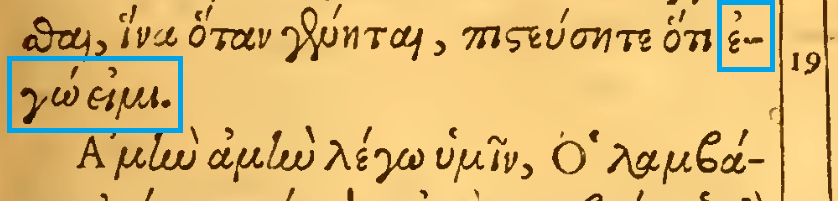 σθαι, ἵνα ὅταν γένηται, πιστεύσητε ὅτι ἐ-
γώ εἰμι. 19
Ἀμὴν ἀμὴν λέγω ὑμῖν, Ὁ λαμβά-